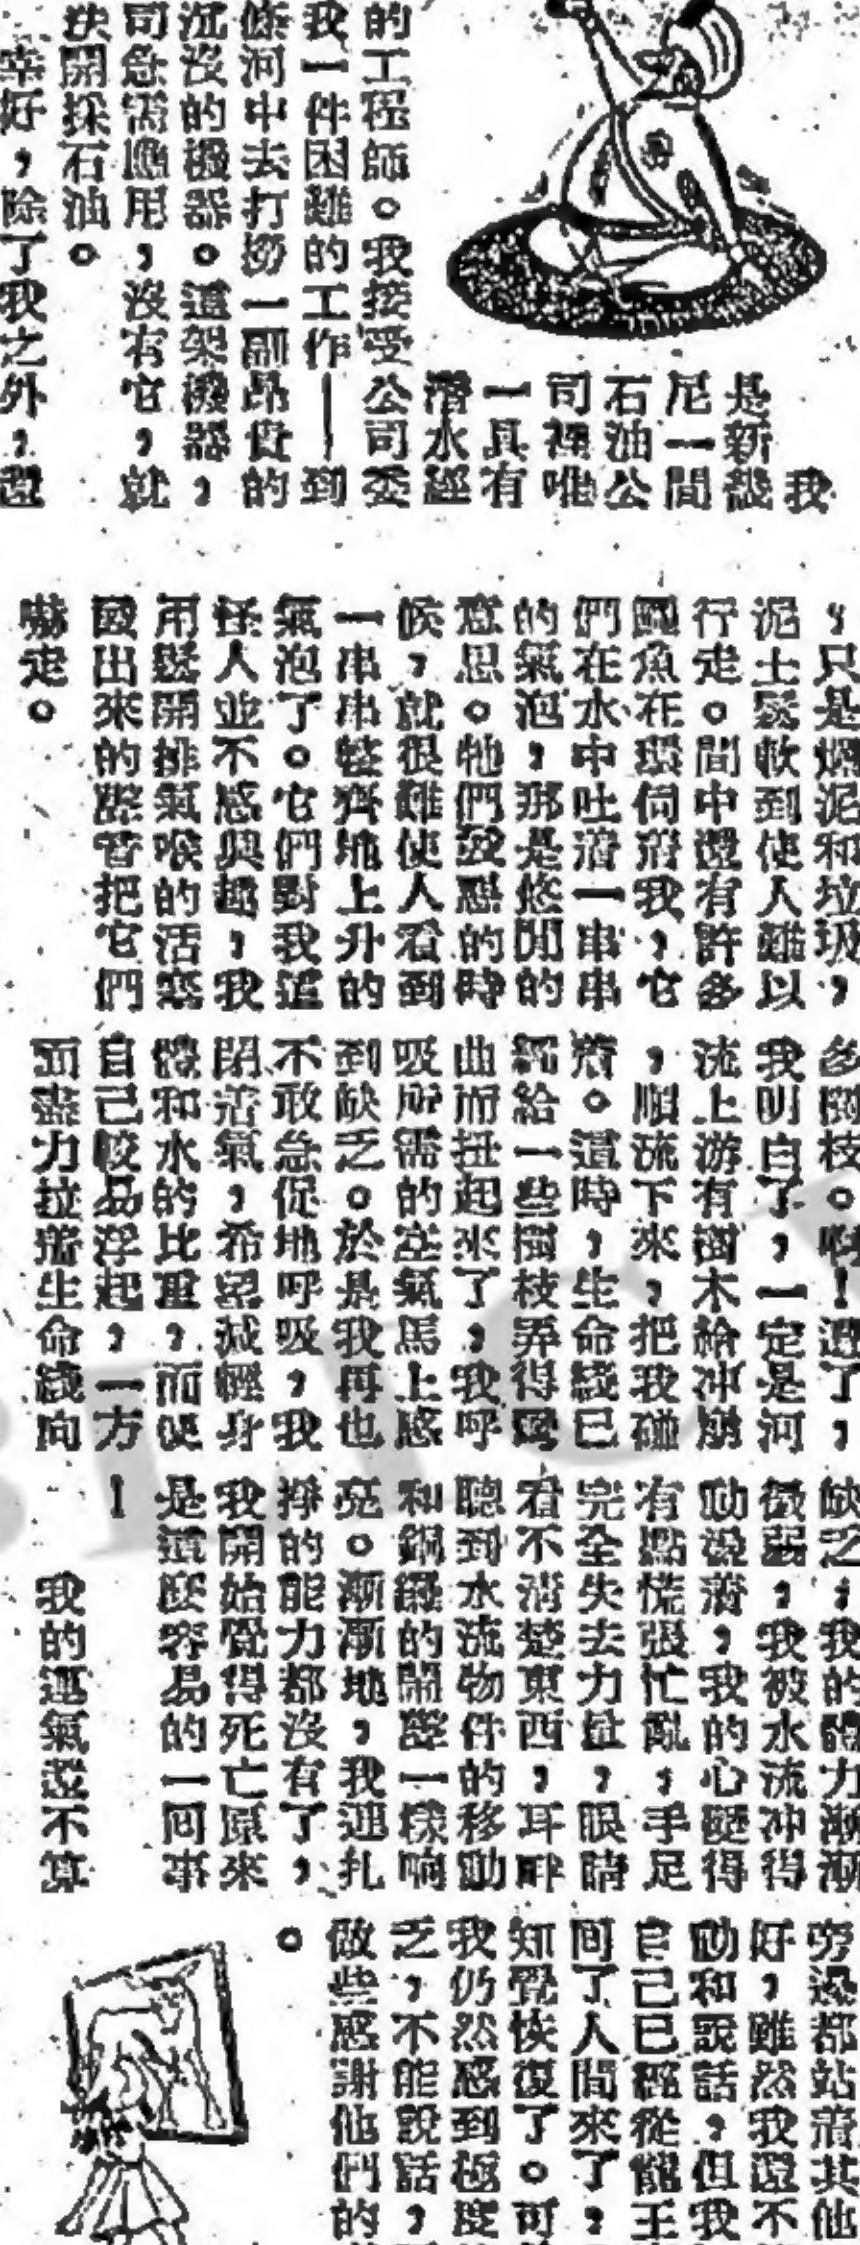 我
是新畿
尼一間
石油公
司裡唯
一具有
潛水經
的工程師。我接受公司委
我一件困難的工作——到
條河中去打撈一副昂貴的
沉沒的機器。這架機器，
司急需應用，沒有它，就
决開採石油。
幸好，除了我之外，還
，只是爛泥和垃圾，
泥土鬆軟到使人難以
行走。間中還有許多
魚在環伺着我，它
們在水中吐着一串串
的氣泡，那是悠閒的
意思。牠們發怒的時
候，就很難使人看到
一串串整齊地上升的
氣泡了。它們對我這
怪人並不感興趣，我
用鬆開排氣喉的活塞
發出來的聲音把它們
嚇走。
多樹枝。啊！遭了，
我明白了，一定是河
流上游有樹木給冲崩
，順流下來，把我碰
着。這時，生命綫已
經給一些樹枝弄得彎
曲而扭起來了，我呼
吸所需的空氣馬上感
到缺乏。於是我再也
不敢急促地呼吸，我
閉着氣，希望減輕身
體和水的比重，而使
自己較易浮起，一方
面盡力拉着生命綫向
缺乏，我的體力漸漸
微弱，我被水流冲得
動盪着，我的心變得
有點慌張忙亂，手足
完全失去力量，眼睛
看不清楚東西，耳畔
聽到水流物件的移動
和銅鑼的鬧聲一樣响
亮。漸漸地，我連扎
掙的能力都沒有了，
我開始覺得死亡原來
是這麼容易的一回事
！
我的運氣還不算
旁邊都站着其他
好，雖然我還不
動和說話，但我
自己已經從龍王
回了人間來了，
知覺恢復了。可
我仍然感到極度
乏，不能說話，
做些感謝他們的
。